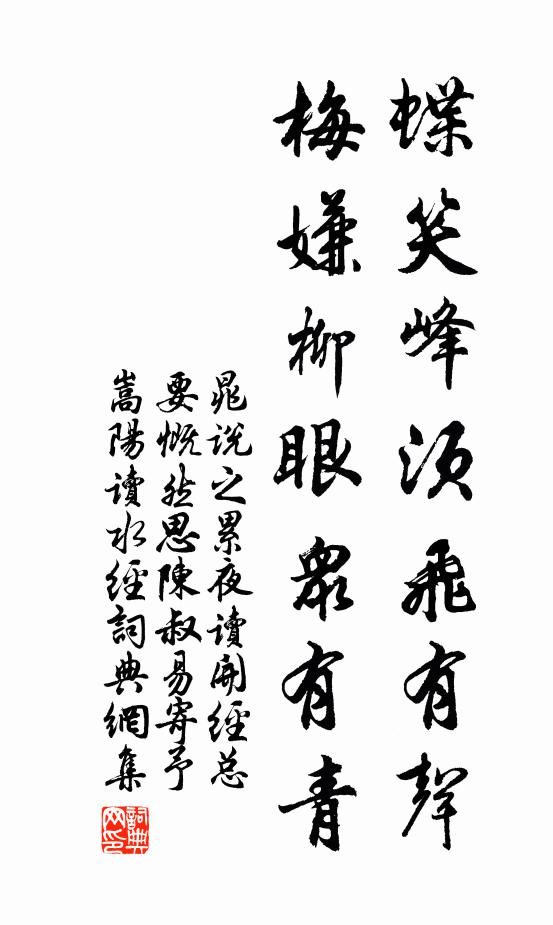 蝶笑峰須飛有聲
梅嫌柳眼衆有青
晁說之累夜讀開經总
要慨然思陳叔易寄予
嵩陽讀水經詞典網集
詞典
网印